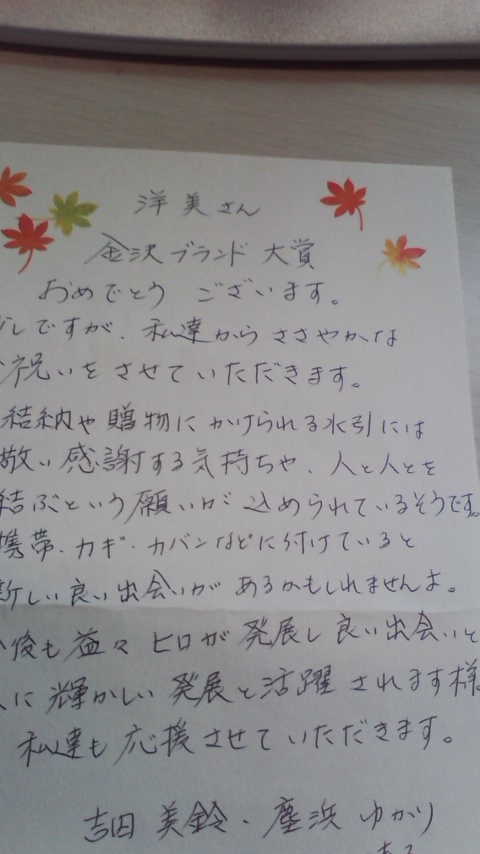 洋美さん
金沢ブランド大賞
おめでとう ございます。
しですが、私達から ささやかな
祝いをさせていただきます。
結納や贈物にかけられる水引には
敬い感謝する気持ちや、人と人とを
結ぶという願いが込められているそうです。
携帯・カギ・カバンなどに付けていると
新しい良い出会いがあるかもしれませんよ。
後も益々ヒロが発展し良い出会いと
に輝かしい発展と活躍されます様
私達も応援させていただきます。
吉田 美鈴・塵浜 ゆかり